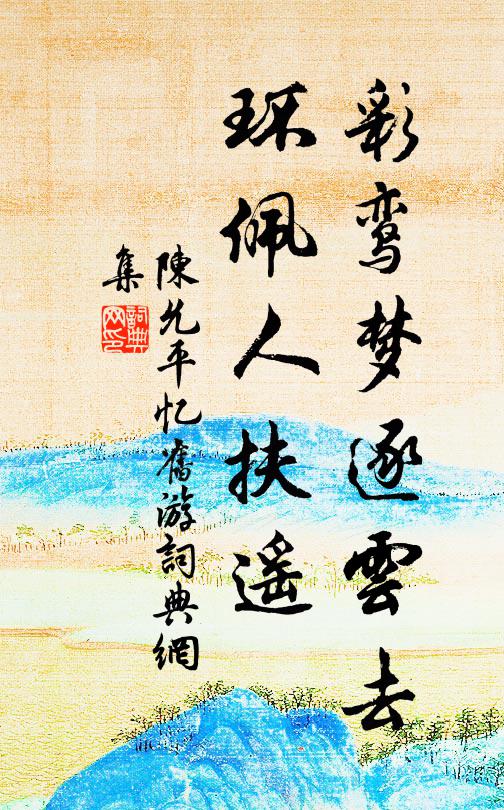 彩鸾梦逐雲去
环佩人扶遥
陳允平忆舊游詞典網
集
詞典网印